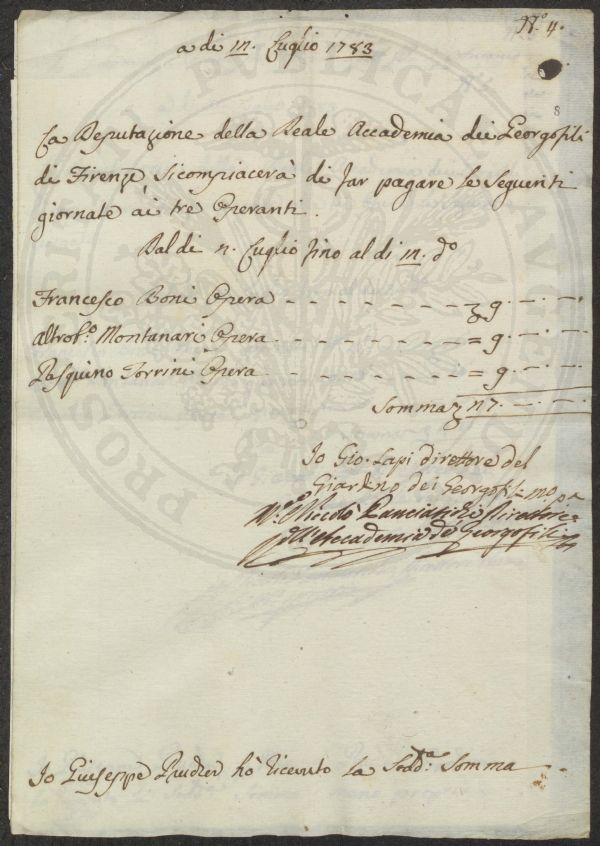 N.° 4.
a di 12. Luglio 1783
8
La Deputazione della Reale Accademia dei Georgofili
di Firenze Si compiacerà di far pagare le Seguenti
giornate ai tre Operanti.
Dal di Luglio fino al di 12. d°
Francesco Boni Opera
Montanari Opera
Pasquino Torrini Opera
Somma
Io Gio. Lapi direttore del
Giardino dei Georgofili mo pa
Niccolò Panciatichi Direttore
dell'Accademia de Georgofili
Io Giuseppe hò ricevuto la Sodd:ta Somma
PROSPERITATI PVBLICAE AVGENDAE